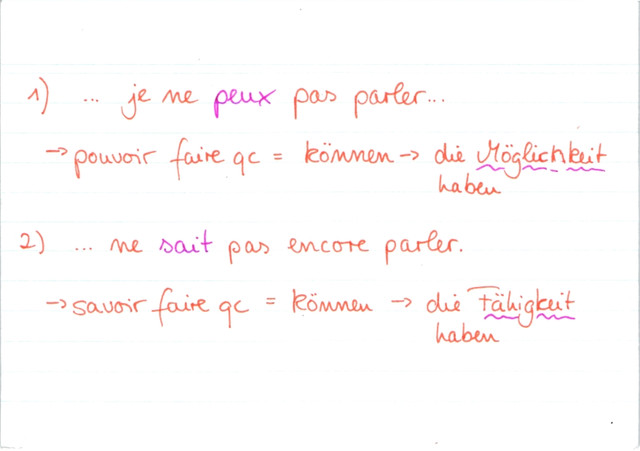 1) ... je ne peux pas parler...
→ pouvoir faire qc = können → die Möglichkeit
haben
2) ... ne sait pas encore parler.
→ savoir faire qc = können → die Fähigkeit
haben